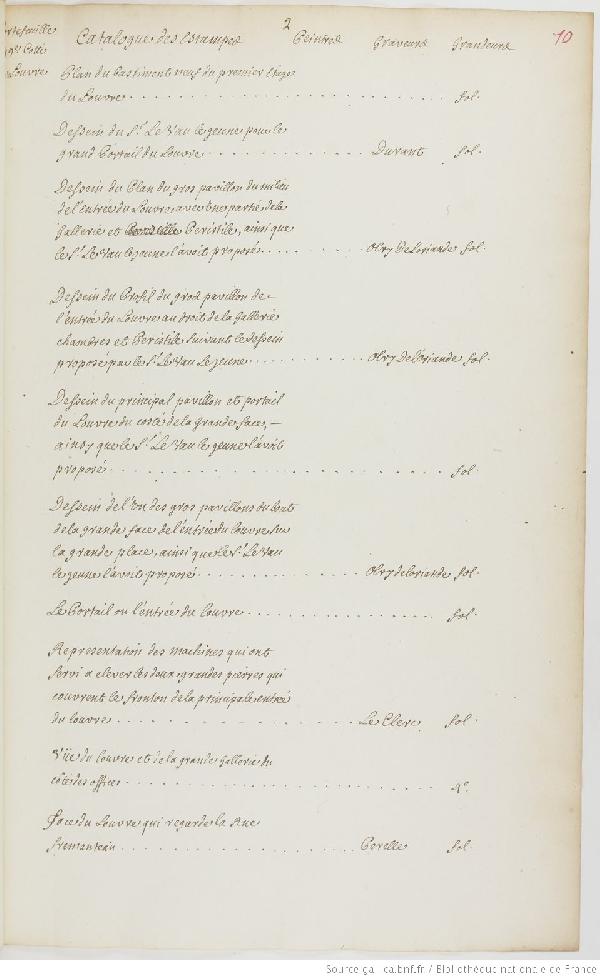 2
10
Portefeuille
Catalogue des Estampes Peintres Graveurs Grandeurs
Louvre
Plan du bastiment neuf du premier Etage
du Louvre fol.
Dessein du Sr. Le Vau le jeune pour le
grand Portail du Louvre Durant fol.
Dessein du Plan du gros pavillon du milieu
de l'entrée du Louvre, avec une partie de la
Gallerie et Peristile, ainsi que
le Sr. Le Vau le jeune l'avoit proposé Olry De Loriande fol.
Dessein du Profil du gros pavillon de
l'entrée du Louvre au droit de la Gallerie
chambres et Peristile suivant le dessein
proposé par le Sr. Le Vau Le jeune Olry Deloriande fol.
Dessein du principal pavillon et portail
du Louvre du costé de la grande face,
ainsy que le Sr. Le Vau le jeune l'avoit
proposé fol.
Dessein de l'un des gros pavillons du bout
de la grande face de l'entrée du louvre sur
la grande place, ainsi que le Sr. Le Vau
le jeune l'avoit proposé Olry deloriande fol.
Le Portail ou l'entrée du Louvre fol.
Representation des machines qui ont
servi a elever les deux grandes pierres qui
couvrent le fronton de la principale entrée
du louvre Le Clerc fol.
Vüe du louvre et de la grande gallerie du
côté des offices 4o.
Face du Louvre qui regarde la Rue
fremanteau Perelle fol.
Source gallica.bnf.fr / Bibliothèque nationale de France